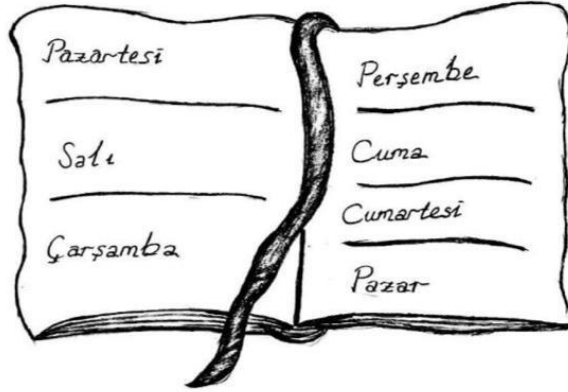 Pazartesi
Salı
Çarşamba
Perşembe
Cuma
Cumartesi
Pazar